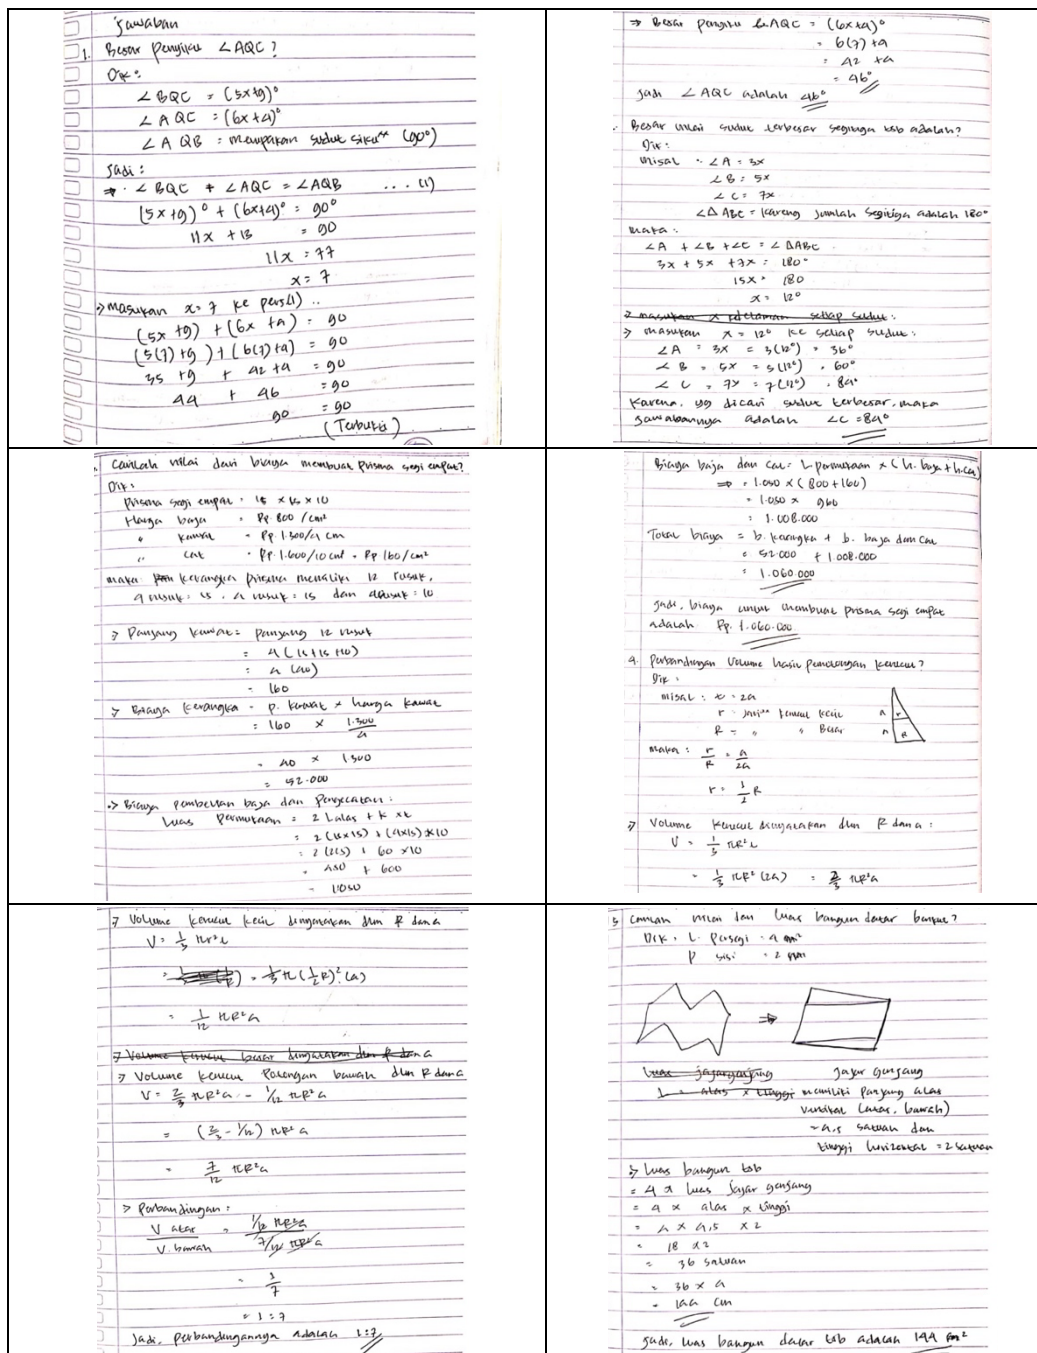 Jawaban
1. Besar Penyiku ∠AQC ?
Dik :
∠BQC = (5x+9)°
∠AQC = (6x+4)°
∠AQB = merupakan sudut siku" (90°)
Jadi :
⇒ ∠BQC + ∠AQC = ∠AQB .... (1)
(5x+9)° + (6x+4)° = 90°
11x + 13 = 90
11x = 77
x = 7
⇒ masukan x = 7 ke pers(1) ..
(5x+9) + (6x+4) = 90
(5(7)+9) + (6(7)+4) = 90
35 +9 + 42 +4 = 90
44 + 46 = 90
90 = 90
(Terbukti)
⇒ Besar penyiku ∠AQC = (6x+4)°
= 6(7) +4
= 42 +4
= 46°
Jadi ∠AQC adalah 46°
Besar nilai sudut terbesar segitiga tsb adalah?
Dik :
misal : ∠A = 3x
∠B = 5x
∠C = 7x
∠△ABC = karena jumlah segitiga adalah 180°
maka :
∠A + ∠B + ∠C = ∠△ABC
3x + 5x + 7x = 180°
15x = 180
x = 12°
⇒ masukan x = 12° ke setiap sudut :
∠A = 3x = 3(12°) = 36°
∠B = 5x = 5(12°) = 60°
∠C = 7x = 7(12°) = 84°
Karena, yg dicari sudut terbesar, maka
jawabannya adalah ∠C = 84°
Carilah nilai dari biaya membuat prisma segi empat?
Dik :
Prisma segi empat = 15 x 15 x 10
Harga baja = Rp. 800 /cm²
" kawat = Rp. 1.300/4 cm
" cat = Rp. 1.600/10 cm² = Rp 160/cm²
maka kerangka prisma memiliki 12 rusuk,
4 rusuk = 15, 4 rusuk = 15 dan 4 rusuk = 10
⇒ Panjang kawat = panjang 12 rusuk
= 4 (15+15+10)
= 4 (40)
= 160
⇒ Biaya kerangka = p. kawat x harga kawat
= 160 x 1.300/4
= 40 x 1300
= 52.000
⇒ Biaya pembelian baja dan Pengecatan :
Luas Permukaan = 2 Lalas + K x t
= 2 (15x15) + (4x15) x 10
= 2 (225) + 60 x 10
= 450 + 600
= 1050
Biaya baja dan cat = L permukaan x (h. baja + h. cat)
⇒ = 1.050 x (800 + 160)
= 1.050 x 960
= 1.008.000
Total biaya = b. kerangka + b. baja dan cat
= 52.000 + 1.008.000
= 1.060.000
Jadi, biaya untuk membuat prisma segi empat
adalah Rp. 1.060.000
4. Perbandingan Volume hasil pemotongan kerucut ?
Dik :
misal : t = 2a
r = jari" kerucut kecil
R = " " Besar
a
r
a
R
maka : r/R = a/2a
r = 1/2 R
⇒ Volume kerucut dinyatakan dlm R dan a :
V = 1/3 πR²t
= 1/3 πR² (2a) = 2/3 πR²a
⇒ Volume kerucut kecil dinyatakan dlm R dan a
V = 1/3 πr²t
= 1/3 π (1/2 R)² (a)
= 1/12 πR²a
⇒ Volume kerucut Potongan bawah dlm R dan a
V = 2/3 πR²a - 1/12 πR²a
= (2/3 - 1/12) πR²a
= 7/12 πR²a
⇒ Perbandingan :
V atas / V. bawah = 1/12 πR²a / 7/12 πR²a
= 1/7
= 1 : 7
Jadi, perbandingannya adalah 1:7
5 Carilah nilai dari luas bangun datar berikut ?
Dik : L. Persegi = 4 cm²
P sisi = 2 cm
⇒
jajar genjang
memiliki panjang alas
vertikal (atas, bawah)
= 4,5 satuan dan
tinggi horizontal = 2 satuan
⇒ Luas bangun tsb
= 4 x luas jajar genjang
= 4 x alas x tinggi
= 4 x 4,5 x 2
= 18 x 2
= 36 satuan
= 36 x 4
= 144 cm
Jadi, luas bangun datar tsb adalah 144 cm²